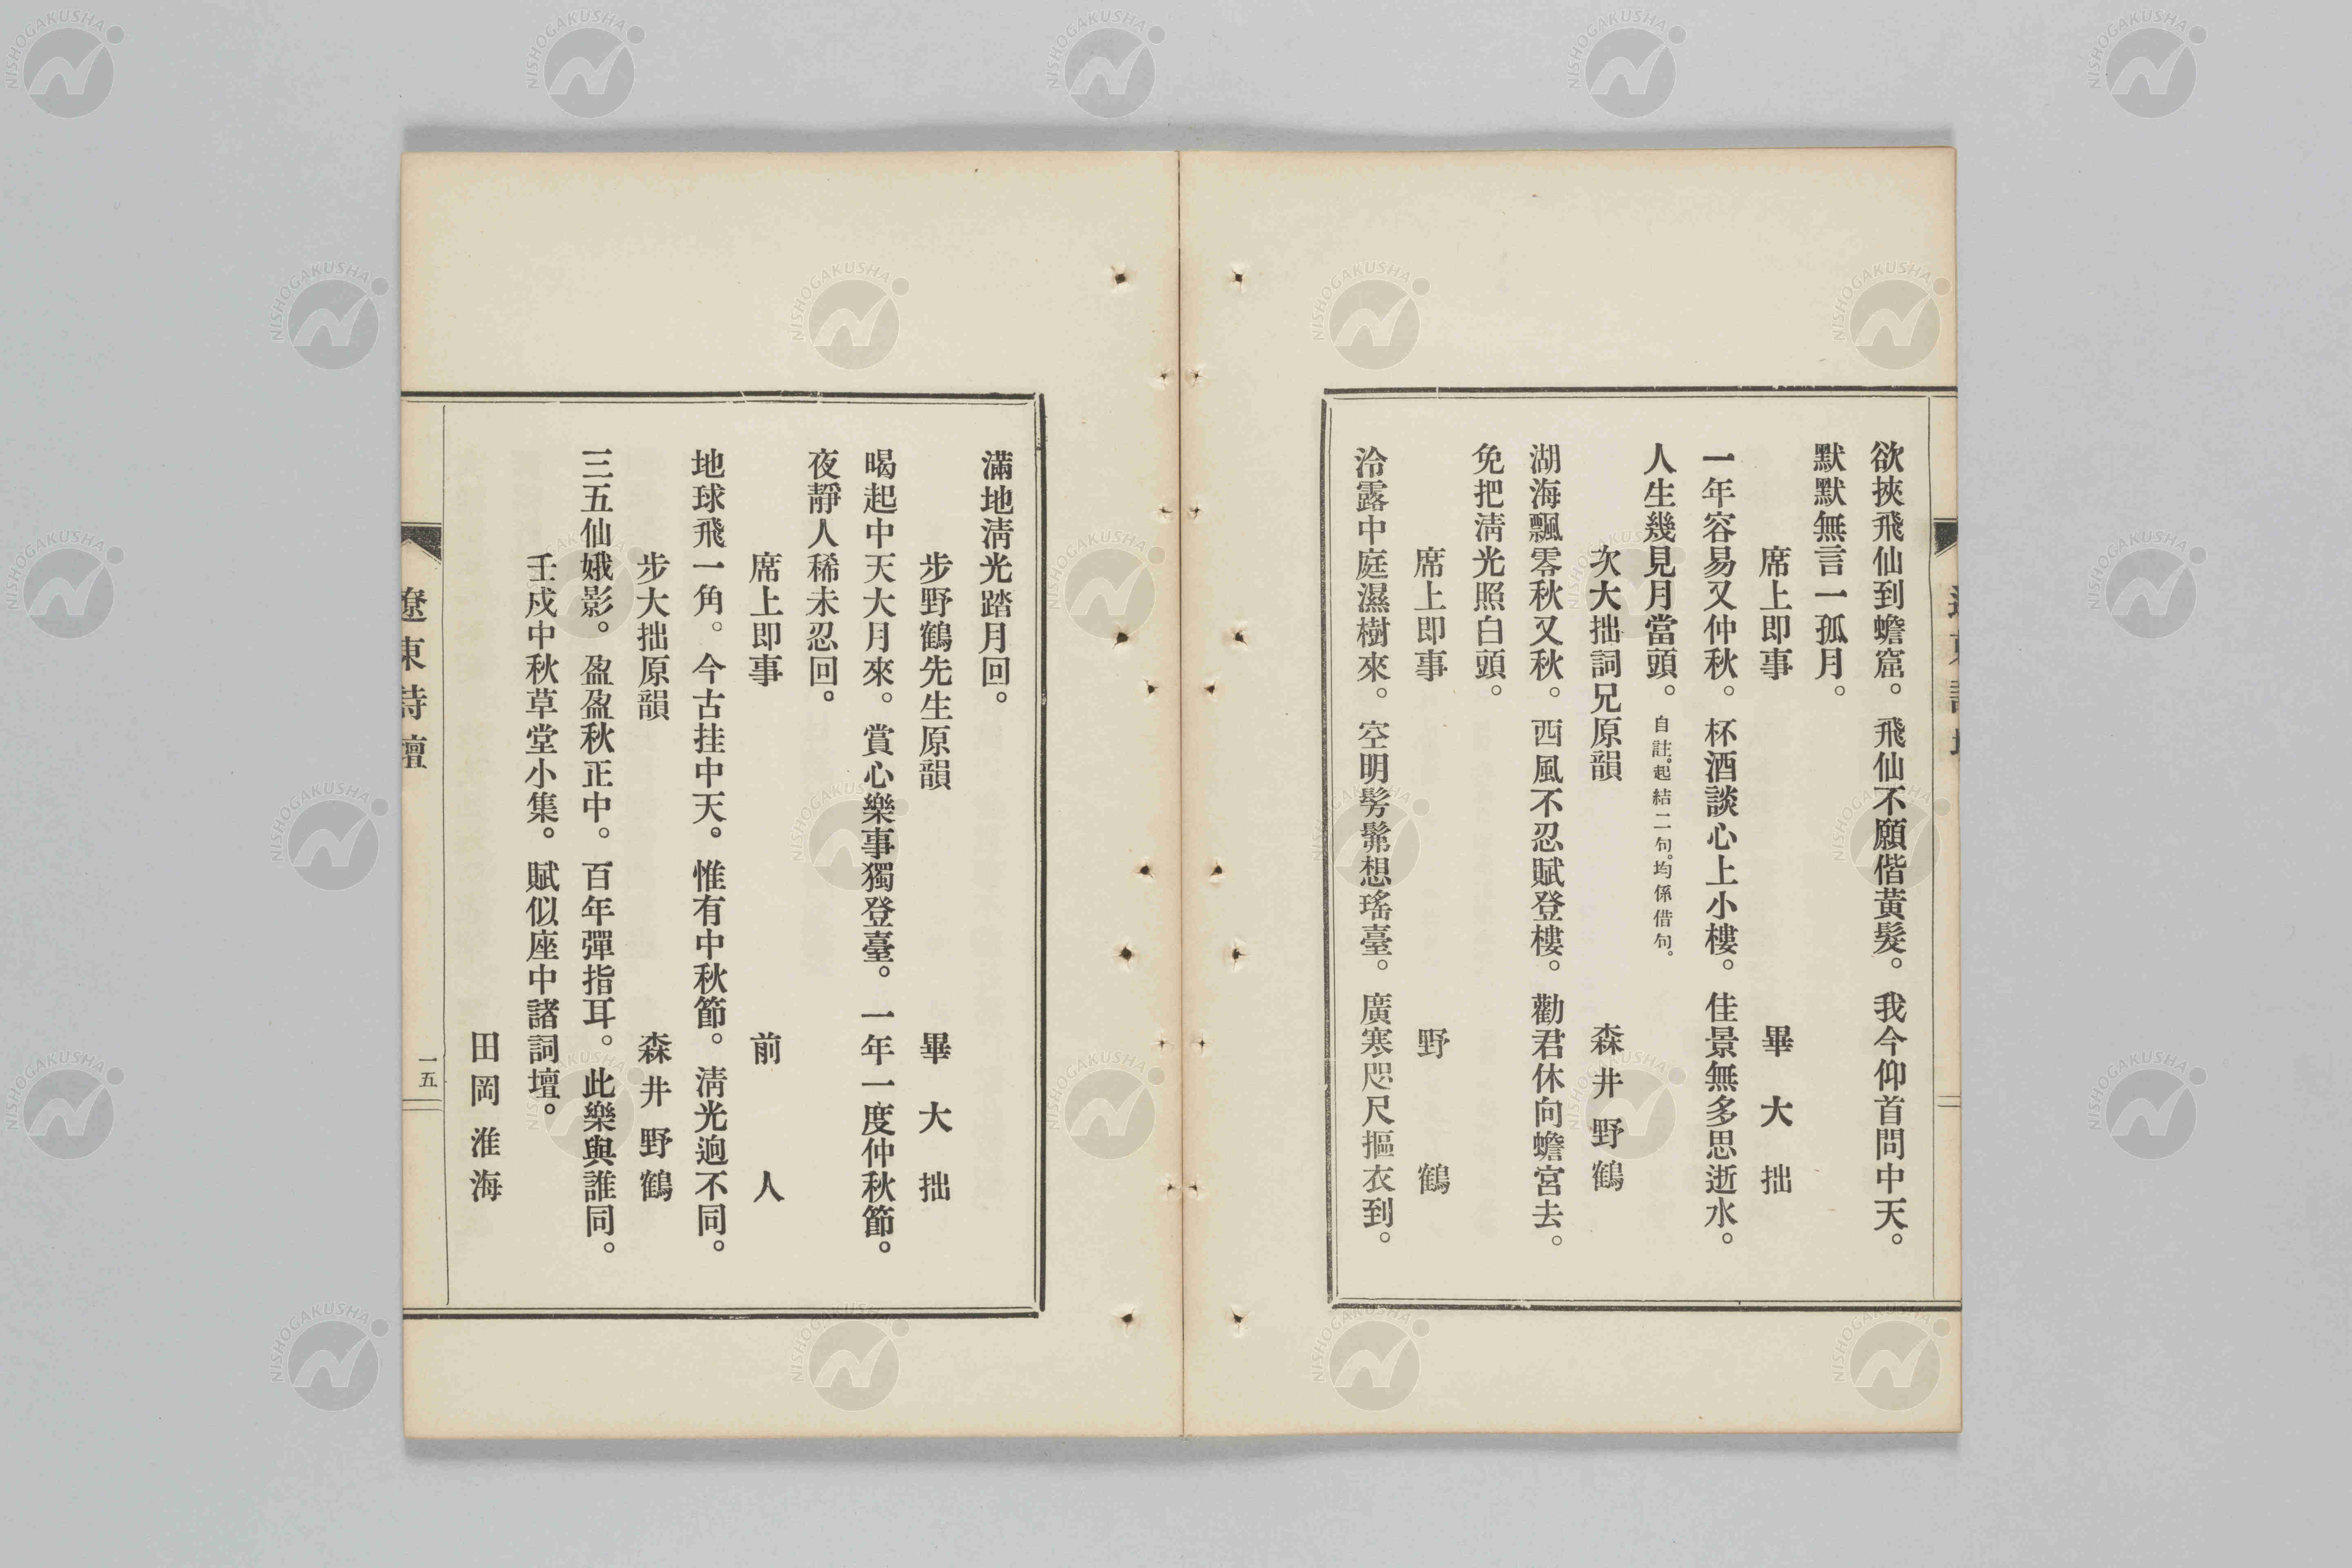 欲挾飛仙到蟾窟。飛仙不願偕黃髮。我今仰首問中天。
默默無言一孤月。
席上即事　畢大拙
一年容易又仲秋。杯酒談心上小樓。佳景無多思逝水。
人生幾見月當頭。自註。起結二句。均係借句。
次大拙詞兄原韻　森井野鶴
湖海飄零秋又秋。西風不忍賦登樓。勸君休向蟾宮去。
免把淸光照白頭。
席上即事　野鶴
洽露中庭濕樹來。空明髣髴想瑤臺。廣寒咫尺摳衣到。
滿地淸光踏月回。
步野鶴先生原韻　畢大拙
喝起中天大月來。賞心樂事獨登臺。一年一度仲秋節。
夜靜人稀未忍回。
席上即事　前人
地球飛一角。今古挂中天。惟有中秋節。淸光逈不同。
步大拙原韻　森井野鶴
三五仙娥影。盈盈秋正中。百年彈指耳。此樂與誰同。
壬戌中秋草堂小集。賦似座中諸詞壇。
田岡淮海
遼東詩壇
一五
NISHOGAKUSHA